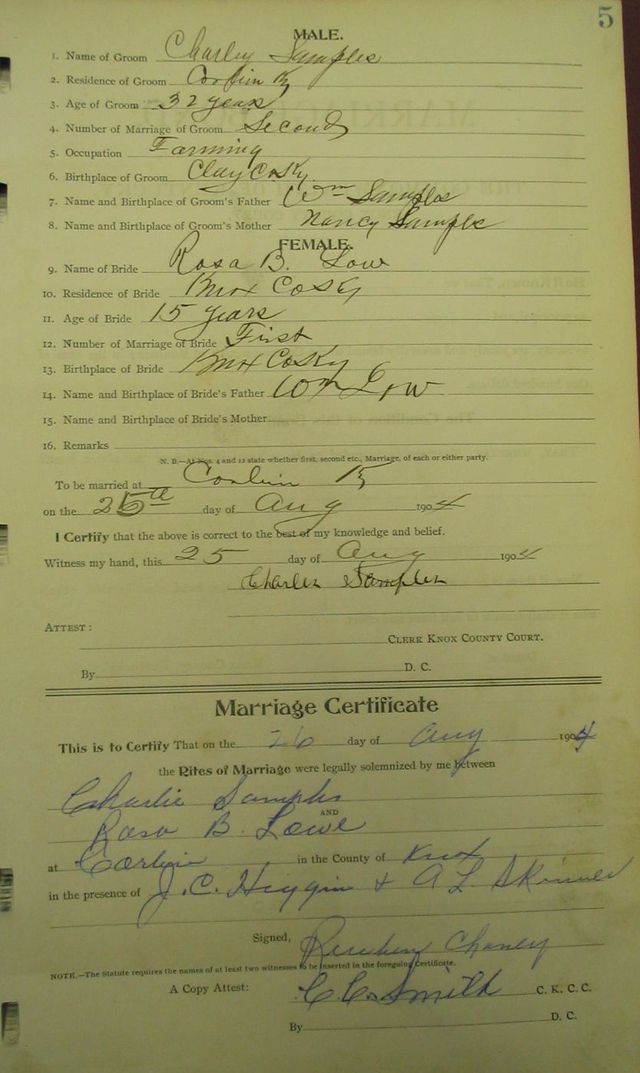 5
MALE.
1. Name of Groom Charley Samples
2. Residence of Groom Corbin Ky
3. Age of Groom 32 years
4. Number of Marriage of Groom Second
5. Occupation Farming
6. Birthplace of Groom Clay Co Ky.
7. Name and Birthplace of Groom's Father Wm Samples
8. Name and Birthplace of Groom's Mother Nancy Samples
FEMALE.
9. Name of Bride Rosa B. Low
10. Residence of Bride Knox Co Ky
11. Age of Bride 15 years
12. Number of Marriage of Bride First
13. Birthplace of Bride Knox Co Ky
14. Name and Birthplace of Bride's Father Wm Low
15. Name and Birthplace of Bride's Mother
16. Remarks
N. B.—At Nos. 4 and 12 state whether first, second etc., Marriage, of each or either party.
To be married at Corbin Ky
on the 25th day of Aug 1904
I Certify that the above is correct to the best of my knowledge and belief.
Witness my hand, this 25 day of Aug 1904
Charles Samples
ATTEST:
CLERK KNOX COUNTY COURT.
By D. C.
Marriage Certificate
This is to Certify That on the 26 day of Aug 1904
the Rites of Marriage were legally solemnized by me between
Charlie Samples
AND
Rosa B. Lowe
at Corbin in the County of Knox
in the presence of J. C. Higgin + A L Skinner
Signed, Reuben Chaney
NOTE.—The Statute requires the names of at least two witnesses to be inserted in the foregoing Certificate.
A Copy Attest: C. C. Smith C. K. C. C.
By D. C.